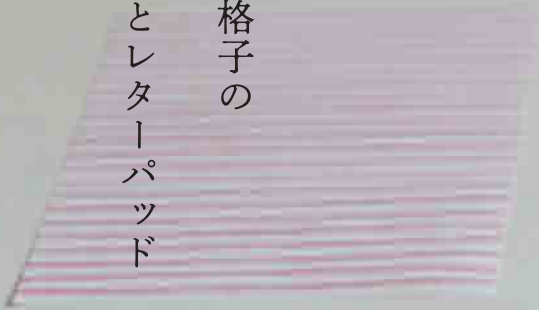 格子の
とレターパッド